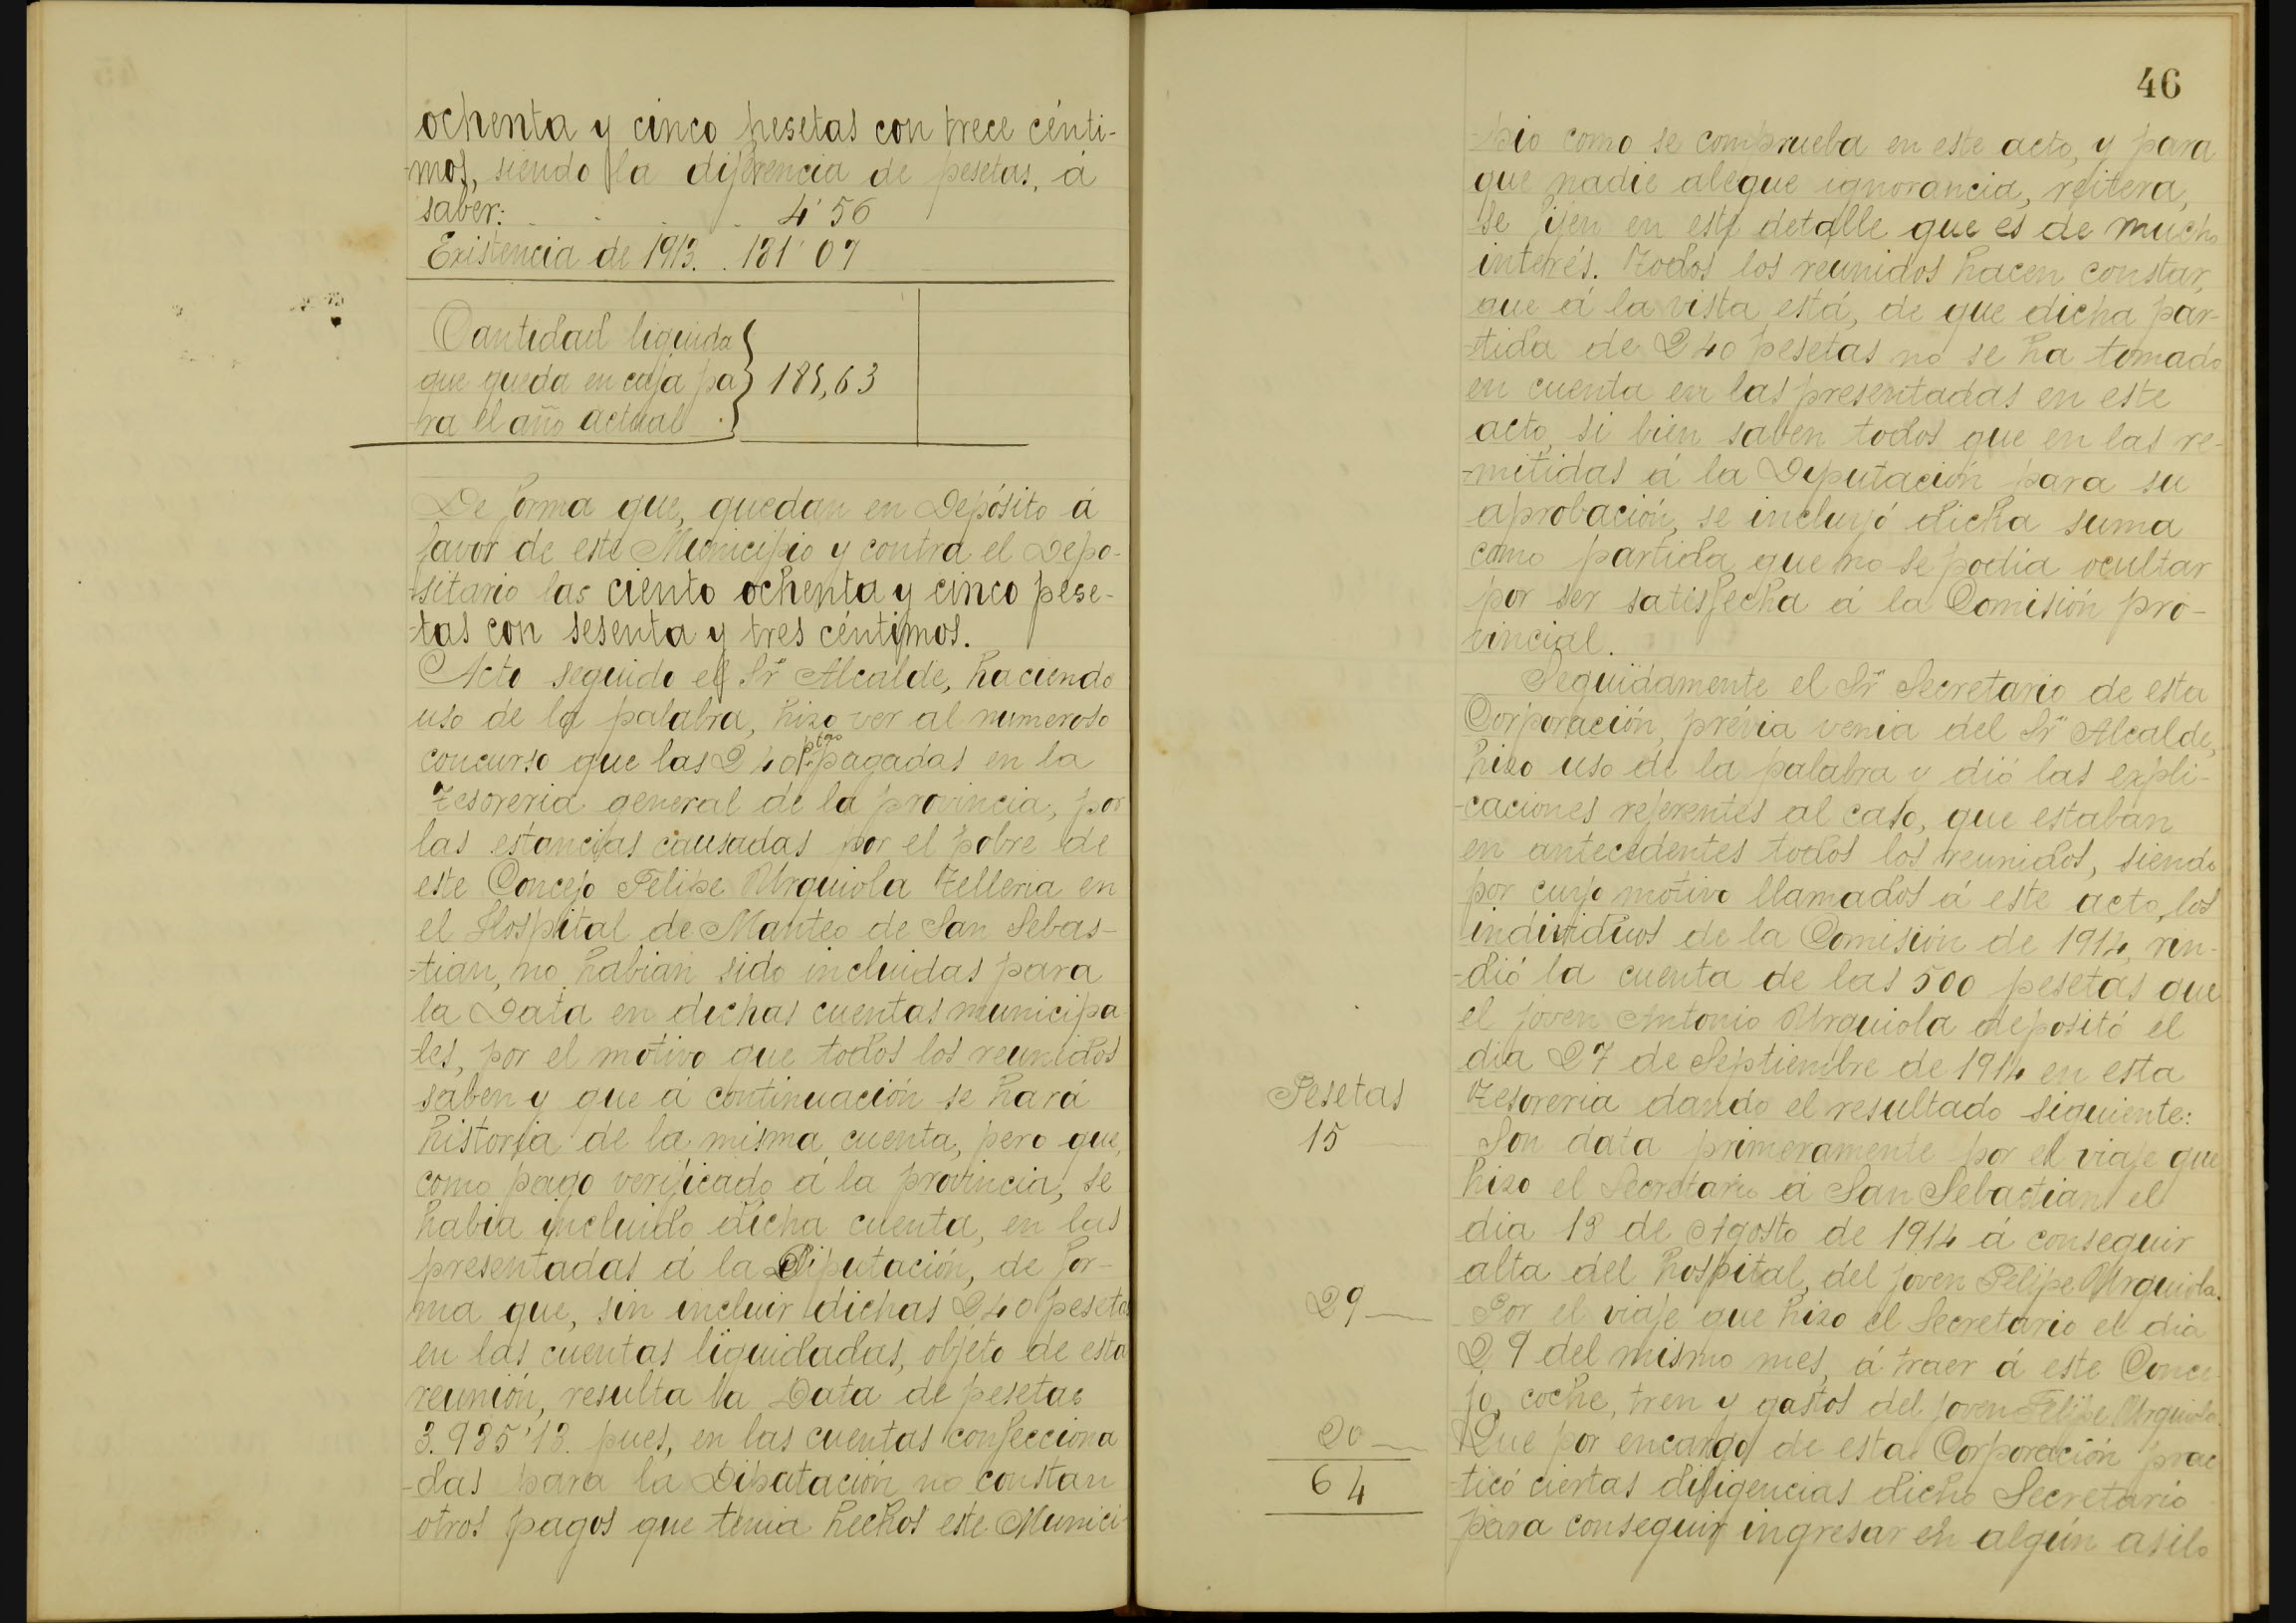 ochenta y cinco pesetas con trece cénti-
-mos, siendo la diferencia de pesetas, á
saber: . . . . 4'56
Existencia de 1913. . 181'07
Cantidad liquida
que queda en caja pa
ra el año actual . } 185,63
De forma que, quedan en Depósito á
favor de este Municipio y contra el Depo-
-sitario las ciento ochenta y cinco pese-
-tas con sesenta y tres céntimos.
Acto seguido el Sr Alcalde, haciendo
uso de la palabra, hizo ver al numeroso
concurso que las 240 ptas pagadas en la
Tesoreria general de la provincia, por
las estancias causadas por el pobre de
este Concejo Felipe Urquiola Telleria en
el Hospital de Manteo de San Sebas-
-tian, no habian sido incluidas para
la Data en dichas cuentas municipa
-les, por el motivo que todos los reunidos
saben y que á continuación se hará
historia de la misma cuenta, pero que,
como pago verificado á la provincia, se
habia incluido dicha cuenta, en las
presentadas á la Diputación, de for-
ma que, sin incluir dichas 240 pesetas
en las cuentas liquidadas, objeto de esta
reunión, resulta la Data de pesetas
3.985'13. pues, en las cuentas confecciona
-das para la Diputación no constan
otros pagos que tenia hechos este Munici-
46
-pio como se comprueba en este acto, y para
que nadie alegue ignorancia, reitera,
se fijen en este detalle que es de mucho
interés. Todos los reunidos hacen constar,
que á la vista está, de que dicha par-
-tida de 240 pesetas no se ha tomado
en cuenta en las presentadas en este
acto, si bien saben todos que en las re-
-mitidas á la Diputación para su
aprobación, se incluyó dicha suma
como partida que no se podia ocultar
por ser satisfecha á la Comisión pro-
vincial.
Seguidamente el Sr Secretario de esta
Corporación, prévia venia del Sr Alcalde,
hizo uso de la palabra y dió las expli-
-caciones referentes al caso, que estaban
en antecedentes todos los reunidos, siendo
por cuyo motivo llamados á este acto, los
individuos de la Comisión de 1914, rin-
-dió la cuenta de las 500 pesetas que
el joven Antonio Urquiola depositó el
dia 27 de Septiembre de 1914 en esta
Pesetas
Tesoreria dando el resultado siguiente:
15
Son data primeramente por el viaje que
hizo el Secretario á San Sebastian el
dia 18 de Agosto de 1914 á conseguir
alta del hospital, del joven Felipe Urquiola.
29
Por el viaje que hizo el Secretario el dia
29 del mismo mes, á traer á este Conce
jo, coche, tren y gastos del joven Felipe Urquiola.
20
Que por encargo de esta Corporación prac
64
-ticó ciertas diligencias dicho Secretario
para conseguir ingresar en algún asilo